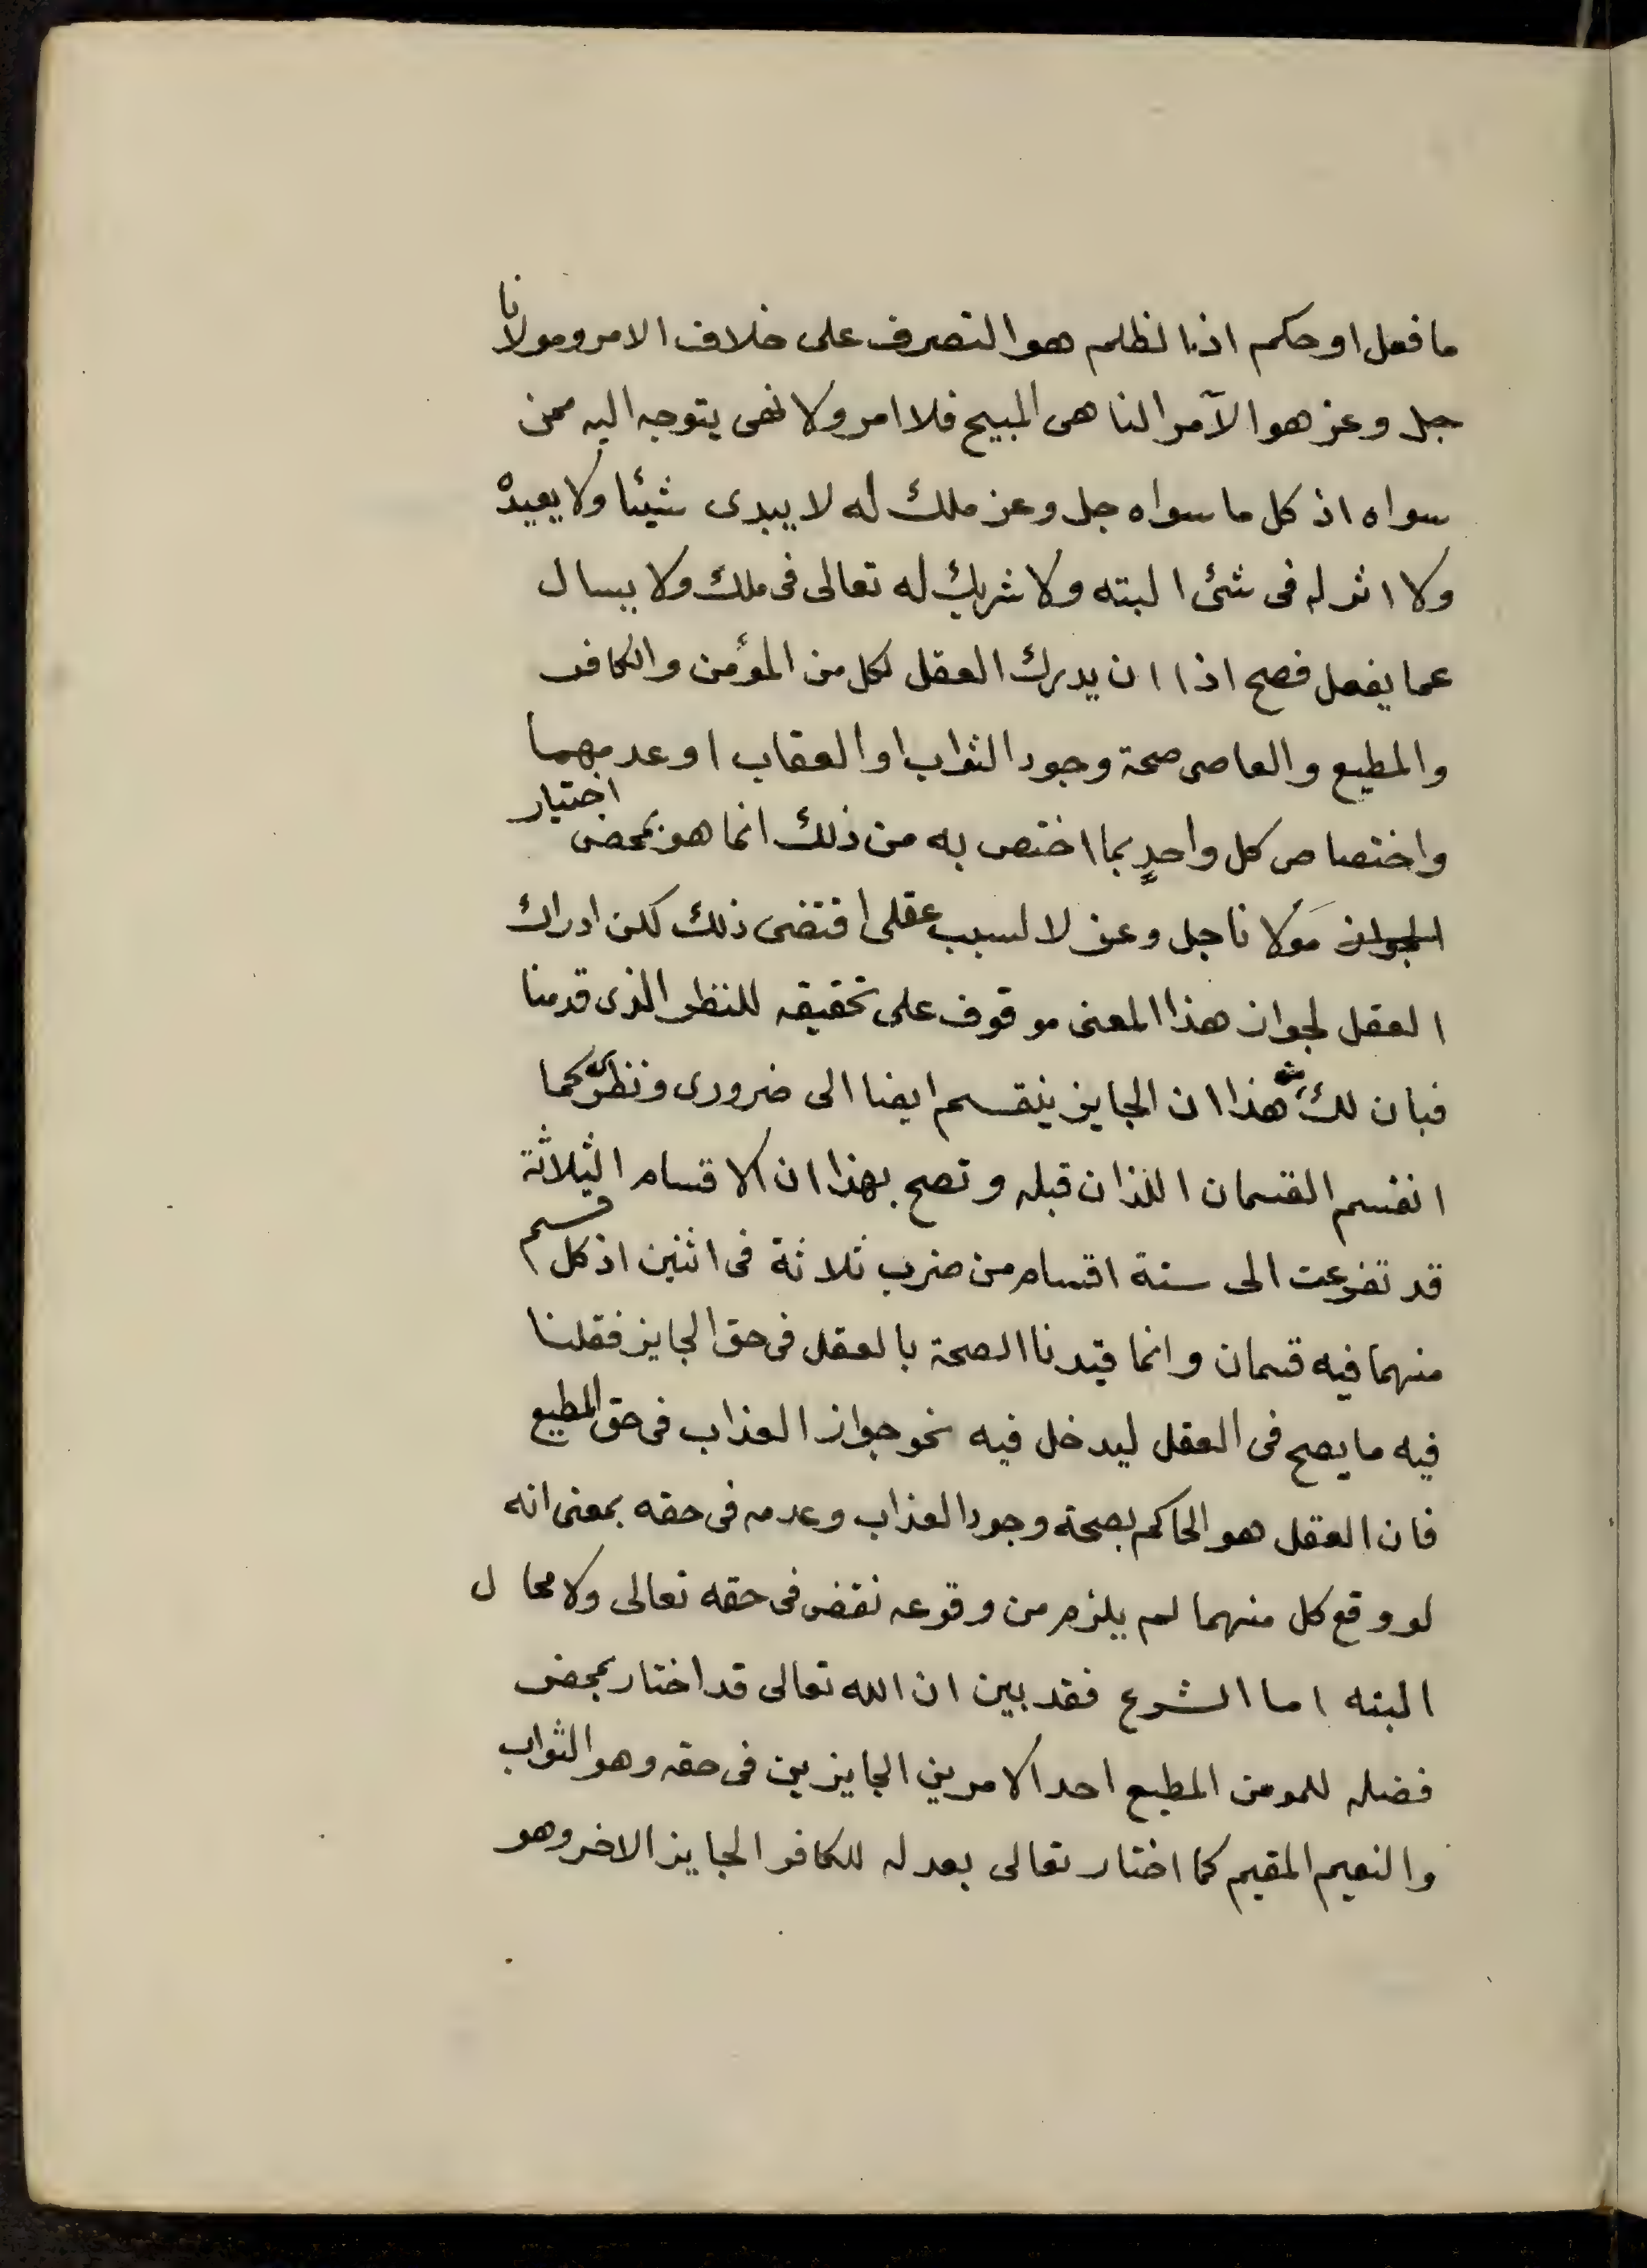 ما فعل او حكم اذ الظلم هو التصرف على خلاف الامر ومولانا
جل وعز هو الآمر الناهى المبيح فلا امر ولا نهى يتوجه اليه ممن
سواه اذ كل ما سواه جل وعز ملك له لا يبدى شيئا ولا يعيده
ولا اثر له فى شئ البته ولا شريك له تعالى فى ملك ولا يسال
عما يفعل فصح اذا ان يدرك العقل لكل من المؤمن والكافر
والمطيع والعاصى صحة وجود الثواب او العقاب او عدمهما
واختصاص كل واحدٍ بما اختص به من ذلك انما هو بمحض اختيار
الجواز مَولانا جل وعز لا لسبب عقلى اقتضى ذلك لكن ادراك
العقل لجواز هذا المعنى موقوف على تحقيقه للنظر الذى قدمنا
فبان لك هذا ان الجايز ينقسم ايضا الى ضرورى ونظرى كما
انقسم القسمان اللذان قبله وتصح بهذا ان الاقسام الثلاثة
قد تفرعت الى ستة اقسام من ضرب ثلاثة فى اثنين اذ كل قسم
منهما فيه قسمان وانما قيدنا الصحة بالعقل فى حق الجايز فقلنا
فيه ما يصح فى العقل ليدخل فيه نحو جواز العذاب فى حق المطيع
فان العقل هو الحاكم بصحة وجود العذاب وعدمه فى حقه بمعنى انه
لو وقع كل منهما لم يلزم من وقوعه نقض فى حقه تعالى ولا محال
البته اما الشرع فقد بين ان الله تعالى قد اختار بمحض
فضله للمومن المطيع احد الامرين الجايزين فى حقه وهو الثواب
والنعيم المقيم كما اختار تعالى بعدله للكافر الجايز الاخر وهو